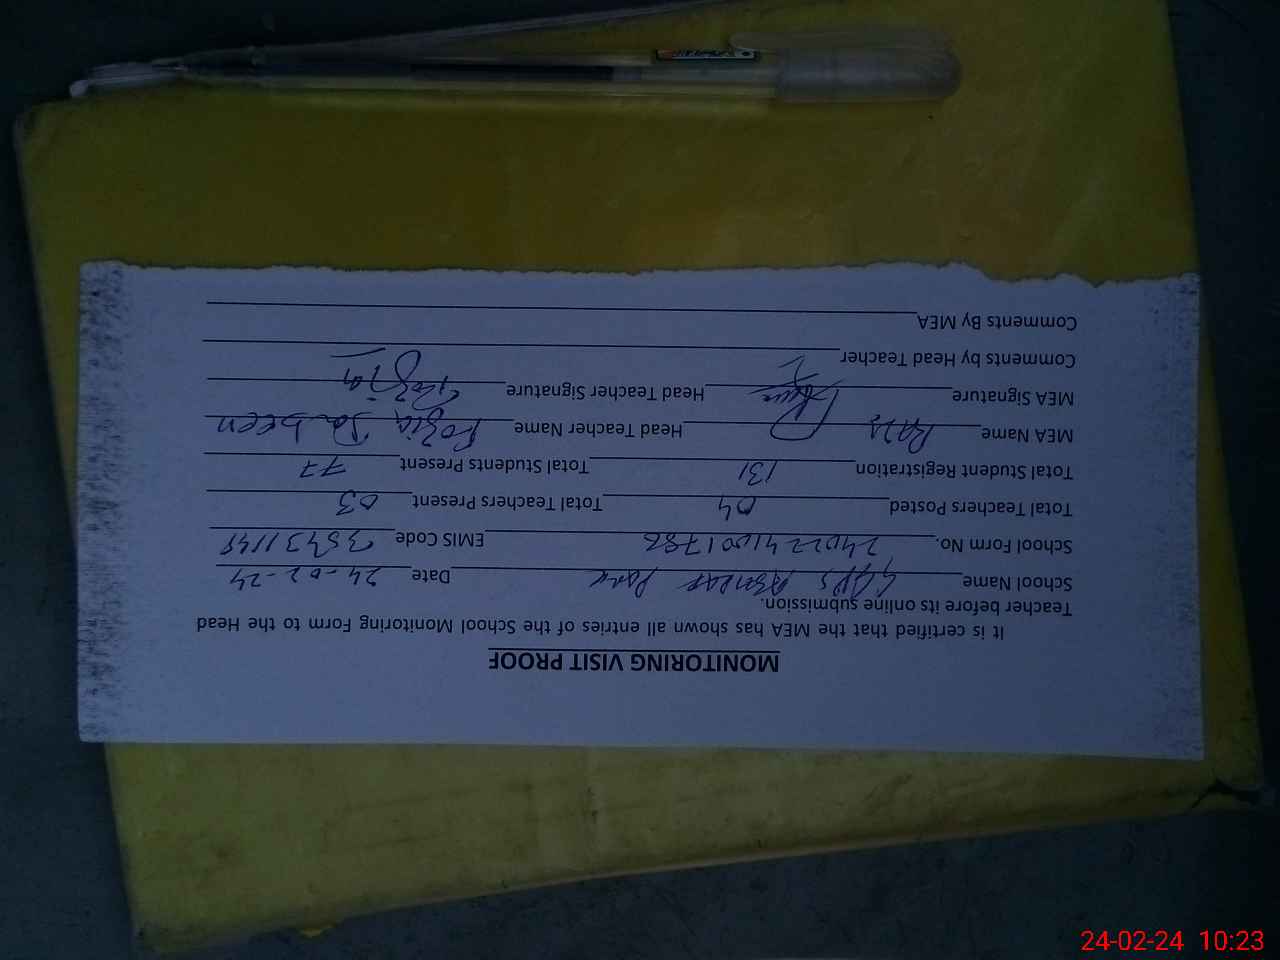 MONITORING VISIT PROOF
It is certified that the MEA has shown all entries of the School Monitoring Form to the Head
Teacher before its online submission.
School Name GGPS Park Date 24-02-24
School Form No. EMIS Code
Total Teachers Posted 04 Total Teachers Present 03
Total Student Registration 131 Total Students Present 77
MEA Name Head Teacher Name Fozia
MEA Signature Head Teacher Signature Fozia
Comments by Head Teacher
Comments By MEA
24-02-24 10:23